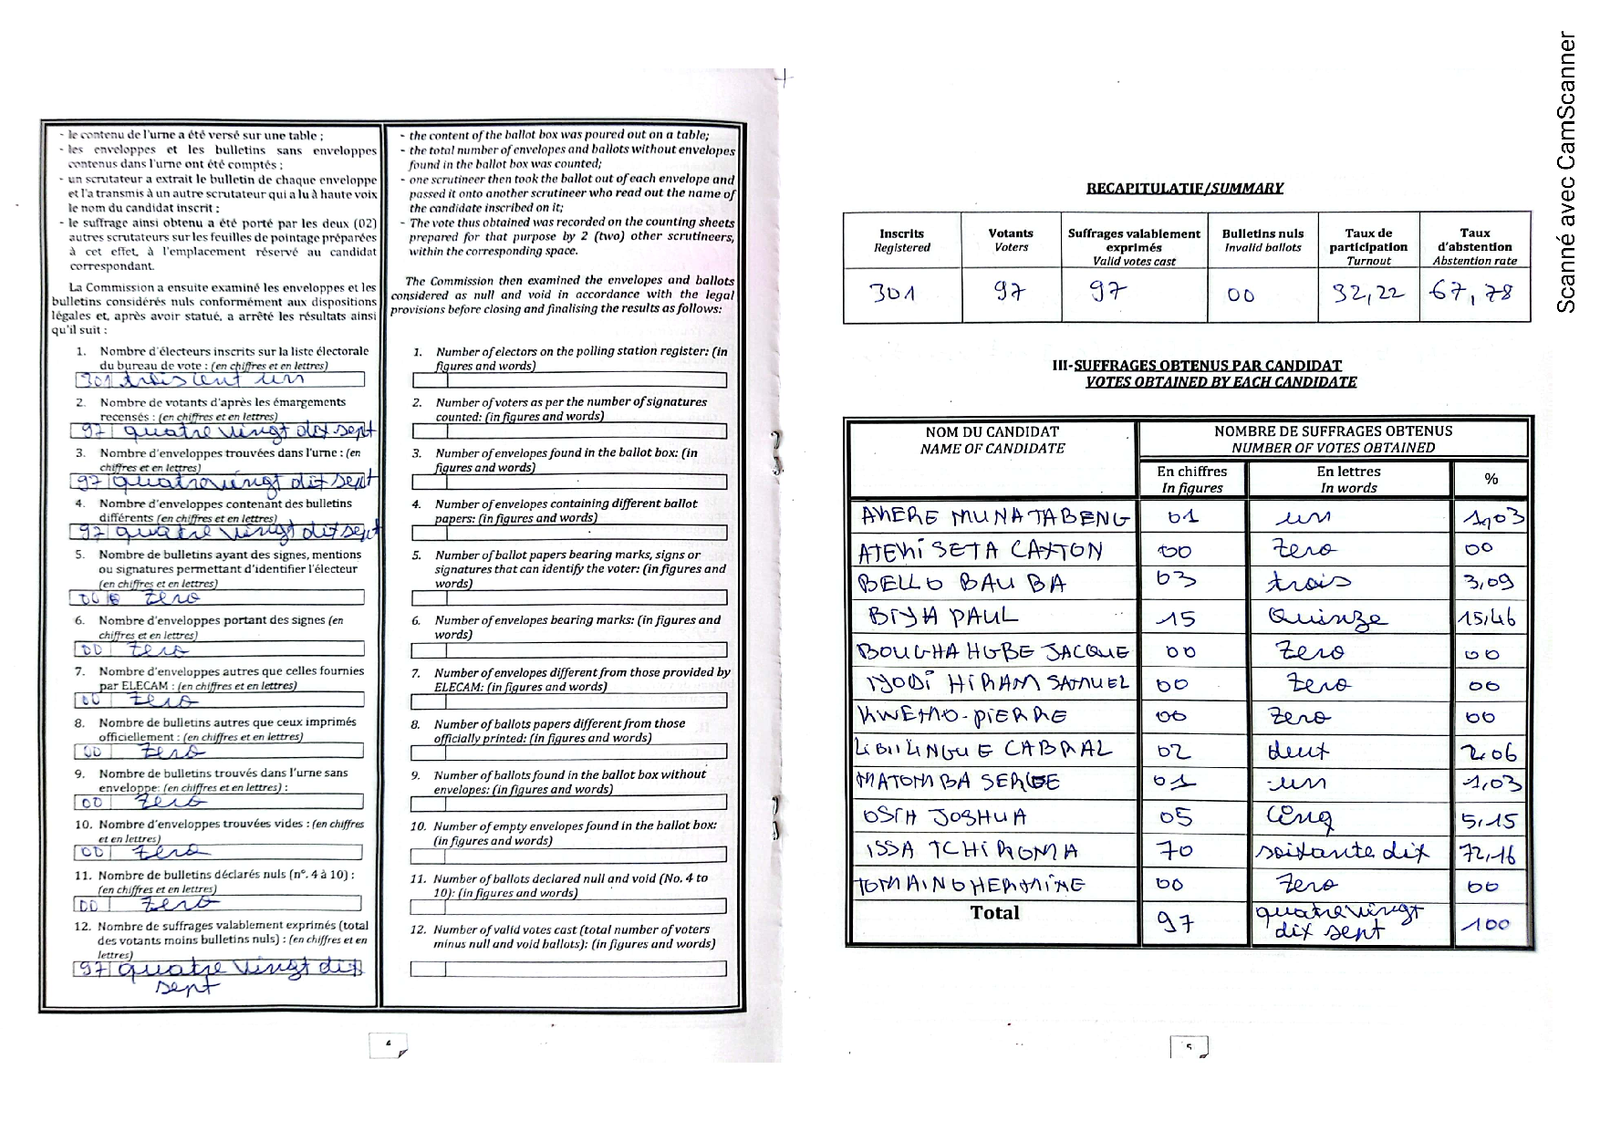 - le contenu de l'urne a été versé sur une table ;
- les enveloppes et les bulletins sans enveloppes
contenus dans l'urne ont été comptés ;
- un scrutateur a extrait le bulletin de chaque enveloppe
et l'a transmis à un autre scrutateur qui a lu à haute voix
le nom du candidat inscrit ;
- le suffrage ainsi obtenu a été porté par les deux (02)
autres scrutateurs sur les feuilles de pointage préparées
à cet effet, à l'emplacement réservé au candidat
correspondant.
La Commission a ensuite examiné les enveloppes et les
bulletins considérés nuls conformément aux dispositions
légales et, après avoir statué, a arrêté les résultats ainsi
qu'il suit :
1. Nombre d'électeurs inscrits sur la liste électorale
du bureau de vote : (en chiffres et en lettres)
301 trois cent un
2. Nombre de votants d'après les émargements
recensés : (en chiffres et en lettres)
97 quatre vingt dix sept
3. Nombre d'enveloppes trouvées dans l'urne : (en
chiffres et en lettres)
97 quatre vingt dix sept
4. Nombre d'enveloppes contenant des bulletins
différents (en chiffres et en lettres)
97 quatre vingt dix sept
5. Nombre de bulletins ayant des signes, mentions
ou signatures permettant d'identifier l'électeur
(en chiffres et en lettres)
00 zero
6. Nombre d'enveloppes portant des signes (en
chiffres et en lettres)
00 zero
7. Nombre d'enveloppes autres que celles fournies
par ELECAM : (en chiffres et en lettres)
00 zero
8. Nombre de bulletins autres que ceux imprimés
officiellement : (en chiffres et en lettres)
00 zero
9. Nombre de bulletins trouvés dans l'urne sans
enveloppe: (en chiffres et en lettres) :
00 zero
10. Nombre d'enveloppes trouvées vides : (en chiffres
et en lettres)
00 zero
11. Nombre de bulletins déclarés nuls (n°. 4 à 10) :
(en chiffres et en lettres)
00 zero
12. Nombre de suffrages valablement exprimés (total
des votants moins bulletins nuls) : (en chiffres et en
lettres)
97 quatre vingt dix
sept
- the content of the ballot box was poured out on a table;
- the total number of envelopes and ballots without envelopes
found in the ballot box was counted;
- one scrutineer then took the ballot out of each envelope and
passed it onto another scrutineer who read out the name of
the candidate inscribed on it;
- The vote thus obtained was recorded on the counting sheets
prepared for that purpose by 2 (two) other scrutineers,
within the corresponding space.
The Commission then examined the envelopes and ballots
considered as null and void in accordance with the legal
provisions before closing and finalising the results as follows:
1. Number of electors on the polling station register: (in
figures and words)
2. Number of voters as per the number of signatures
counted: (in figures and words)
3. Number of envelopes found in the ballot box: (in
figures and words)
4. Number of envelopes containing different ballot
papers: (in figures and words)
5. Number of ballot papers bearing marks, signs or
signatures that can identify the voter: (in figures and
words)
6. Number of envelopes bearing marks: (in figures and
words)
7. Number of envelopes different from those provided by
ELECAM: (in figures and words)
8. Number of ballots papers different from those
officially printed: (in figures and words)
9. Number of ballots found in the ballot box without
envelopes: (in figures and words)
10. Number of empty envelopes found in the ballot box:
(in figures and words)
11. Number of ballots declared null and void (No. 4 to
10): (in figures and words)
12. Number of valid votes cast (total number of voters
minus null and void ballots): (in figures and words)
4
RECAPITULATIF/SUMMARY
Inscrits Registered | Votants Voters | Suffrages valablement exprimés Valid votes cast | Bulletins nuls Invalid ballots | Taux de participation Turnout | Taux d'abstention Abstention rate
301 97 97 00 32,22 67,78
III-SUFFRAGES OBTENUS PAR CANDIDAT
VOTES OBTAINED BY EACH CANDIDATE
NOM DU CANDIDAT NOMBRE DE SUFFRAGES OBTENUS
NAME OF CANDIDATE NUMBER OF VOTES OBTAINED
En chiffres En lettres %
In figures In words
AKERE MUNA TABENG 01 un 1,03
ATEKI SETA CAXTON 00 zero 00
BELLO BAU BA 03 trois 3,09
BIYA PAUL 15 Quinze 15,46
BOUGHA HGBE JACQUE 00 zero 00
IYODI HIRAM SAMUEL 00 zero 00
KWEMO-PIERRE 00 zero 00
LIBII LINGUE CABRAL 02 deux 2,06
MATOMBA SERGE 01 un 1,03
OSIH JOSHUA 05 Cinq 5,15
ISSA TCHIROMA 70 soixante dix 72,16
TOMAINO HERMINE 00 zero 00
Total 97 quatre vingt dix sept 100
5
Scanné avec CamScanner